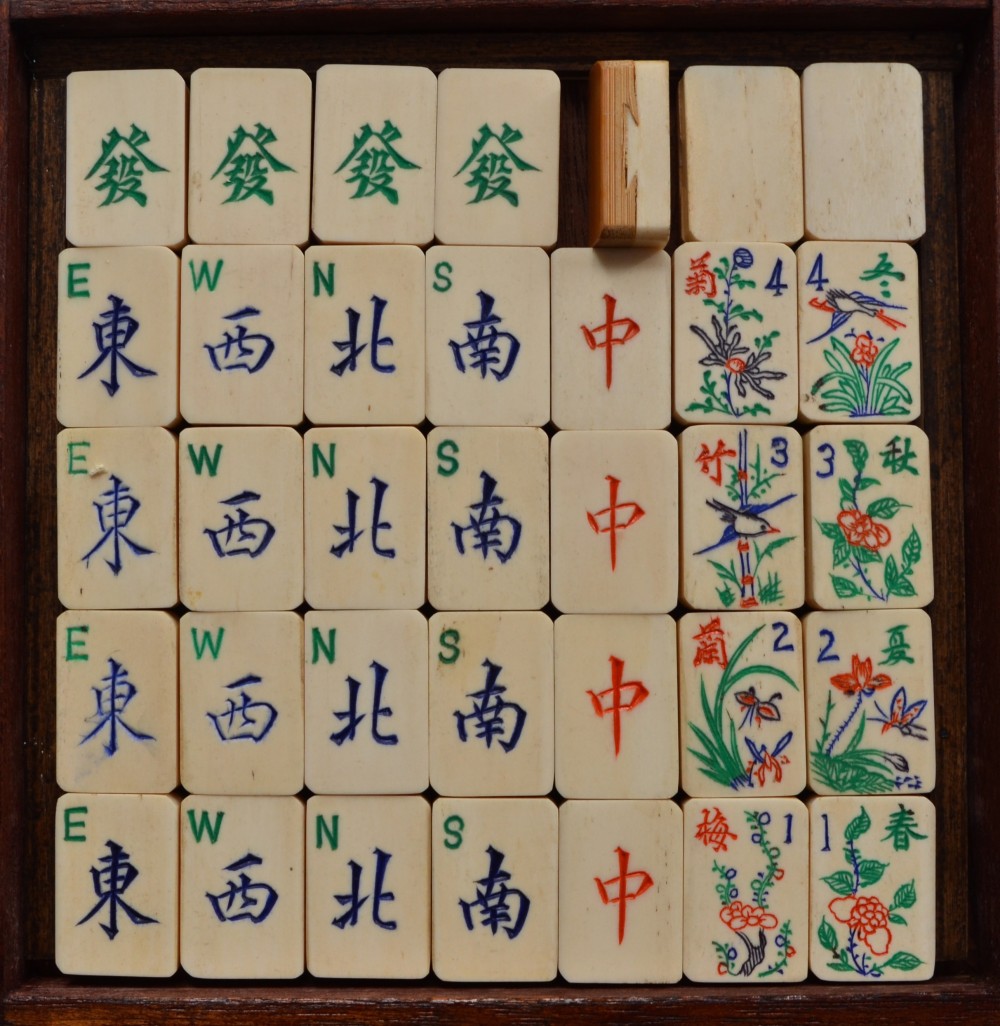 發 發 發 發
E 東 W 西 N 北 S 南 中 菊 4 4 冬
E 東 W 西 N 北 S 南 中 竹 3 3 秋
E 東 W 西 N 北 S 南 中 蘭 2 2 夏
E 東 W 西 N 北 S 南 中 梅 1 1 春